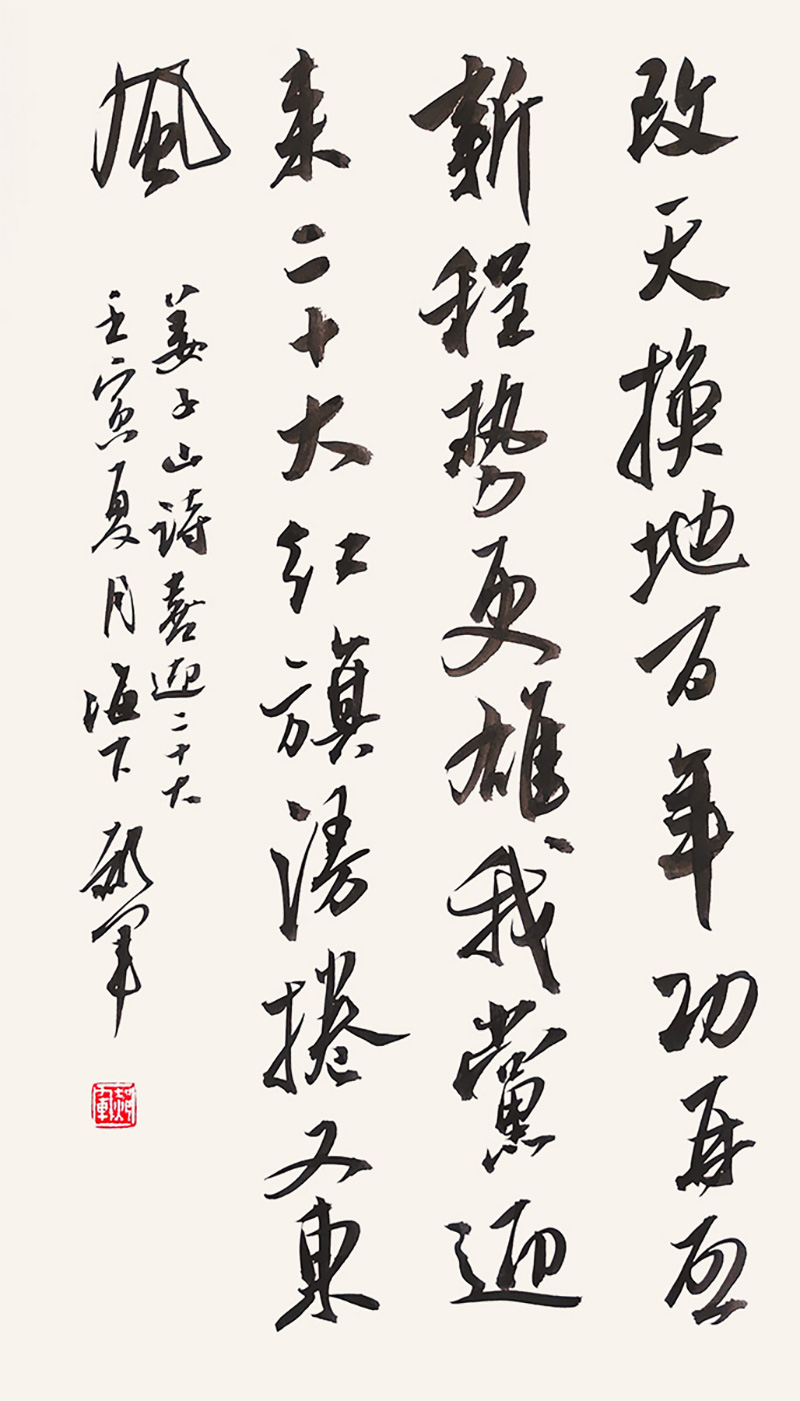 改天換地百年功再启
新程势更雄我黨迎
来二十大红旗漫捲又東
風
姜子山诗喜迎二十大
壬寅夏月海下郝军